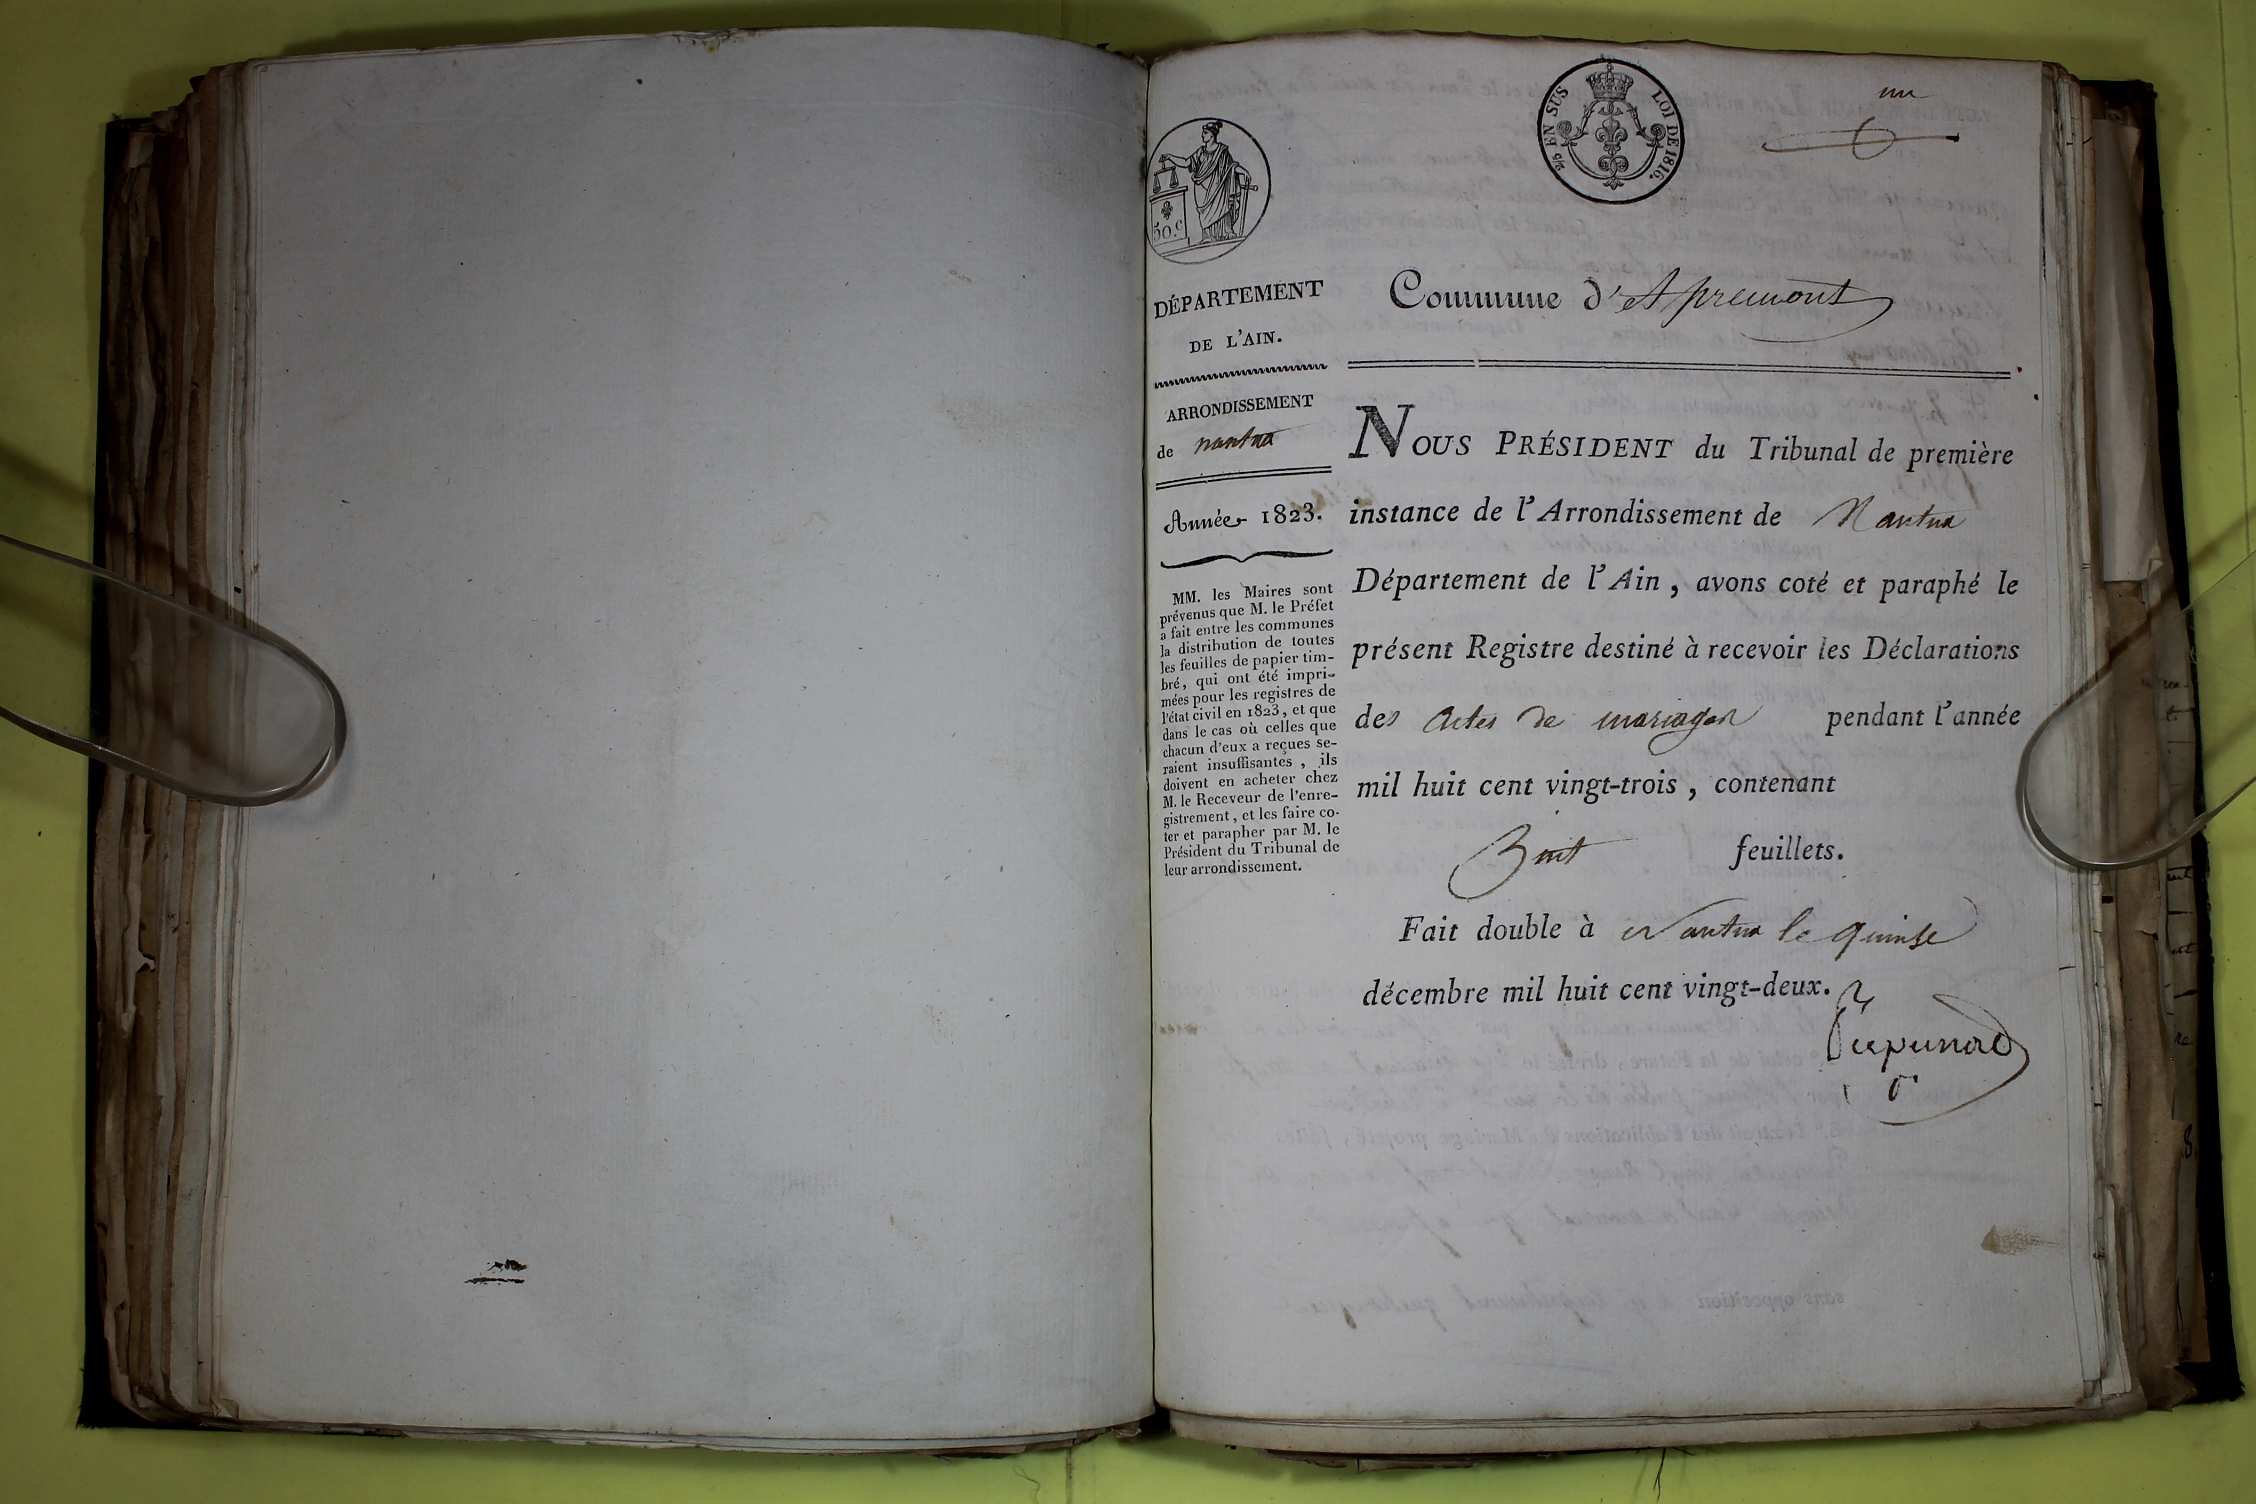 un
2/10 EN SUS LOI DE 1816.
50.c
DÉPARTEMENT
DE L'AIN.
ARRONDISSEMENT
de nantua
Année 1823.
MM. les Maires sont
prévenus que M. le Préfet
a fait entre les communes
la distribution de toutes
les feuilles de papier tim-
bré, qui ont été impri-
mées pour les registres de
l'état civil en 1823, et que
dans le cas où celles que
chacun d'eux a reçues se-
raient insuffisantes, ils
doivent en acheter chez
M. le Receveur de l'enre-
gistrement, et les faire co-
ter et parapher par M. le
Président du Tribunal de
leur arrondissement.
Commune d'Apremont
NOUS PRÉSIDENT du Tribunal de première
instance de l'Arrondissement de Nantua
Département de l'Ain, avons coté et paraphé le
présent Registre destiné à recevoir les Déclarations
des actes de mariages pendant l'année
mil huit cent vingt-trois, contenant
huit feuillets.
Fait double à Nantua le quinse
décembre mil huit cent vingt-deux.